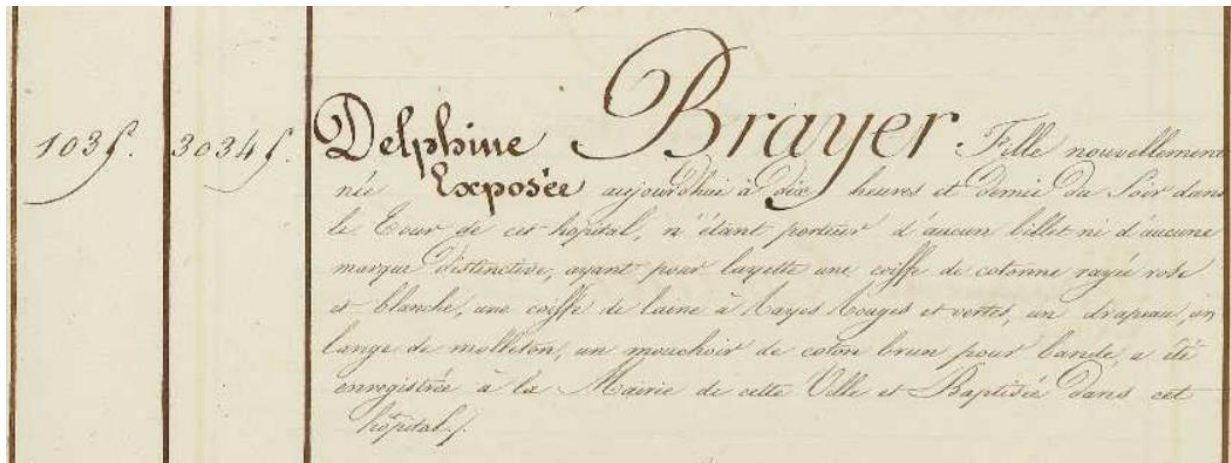 1035. 30345. Delphine Brayer. Fille nouvellement
née Exposée aujourd'hui à dix heures et demie du Soir dans
le Tour de cet hopital, n'étant porteur d'aucun billet ni d'aucune
marque distinctive, ayant pour layette une coiffe de cotonne rayée rose
et blanche, une coiffe de laine à Rayes Rouges et vertes, un drapeau, un
lange de molleton, un mouchoir de coton brun pour bande, a été
enregistrée à la Mairie de cette Ville et Baptisée dans cet
hôpital./.